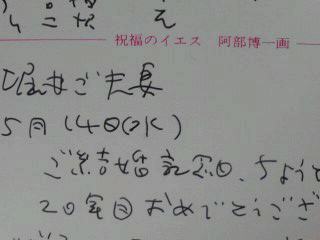 祝福のイエス 阿部博一画
ご夫妻
5月14日(水)
ご結婚記念日、ちょうど
20年目おめでとうござ